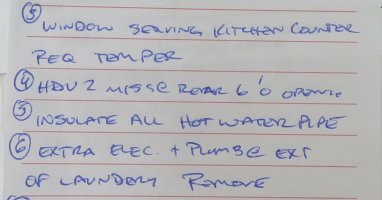 ③ WINDOW SERVING KITCHEN COUNTER
REQ TEMPER
④ HDU 2 MISSG REAR 6'0 OPENG.
⑤ INSULATE ALL HOT WATER PIPE
⑥ EXTRA ELEC. + PLUMBG EXT
OF LAUNDRY REMOVE